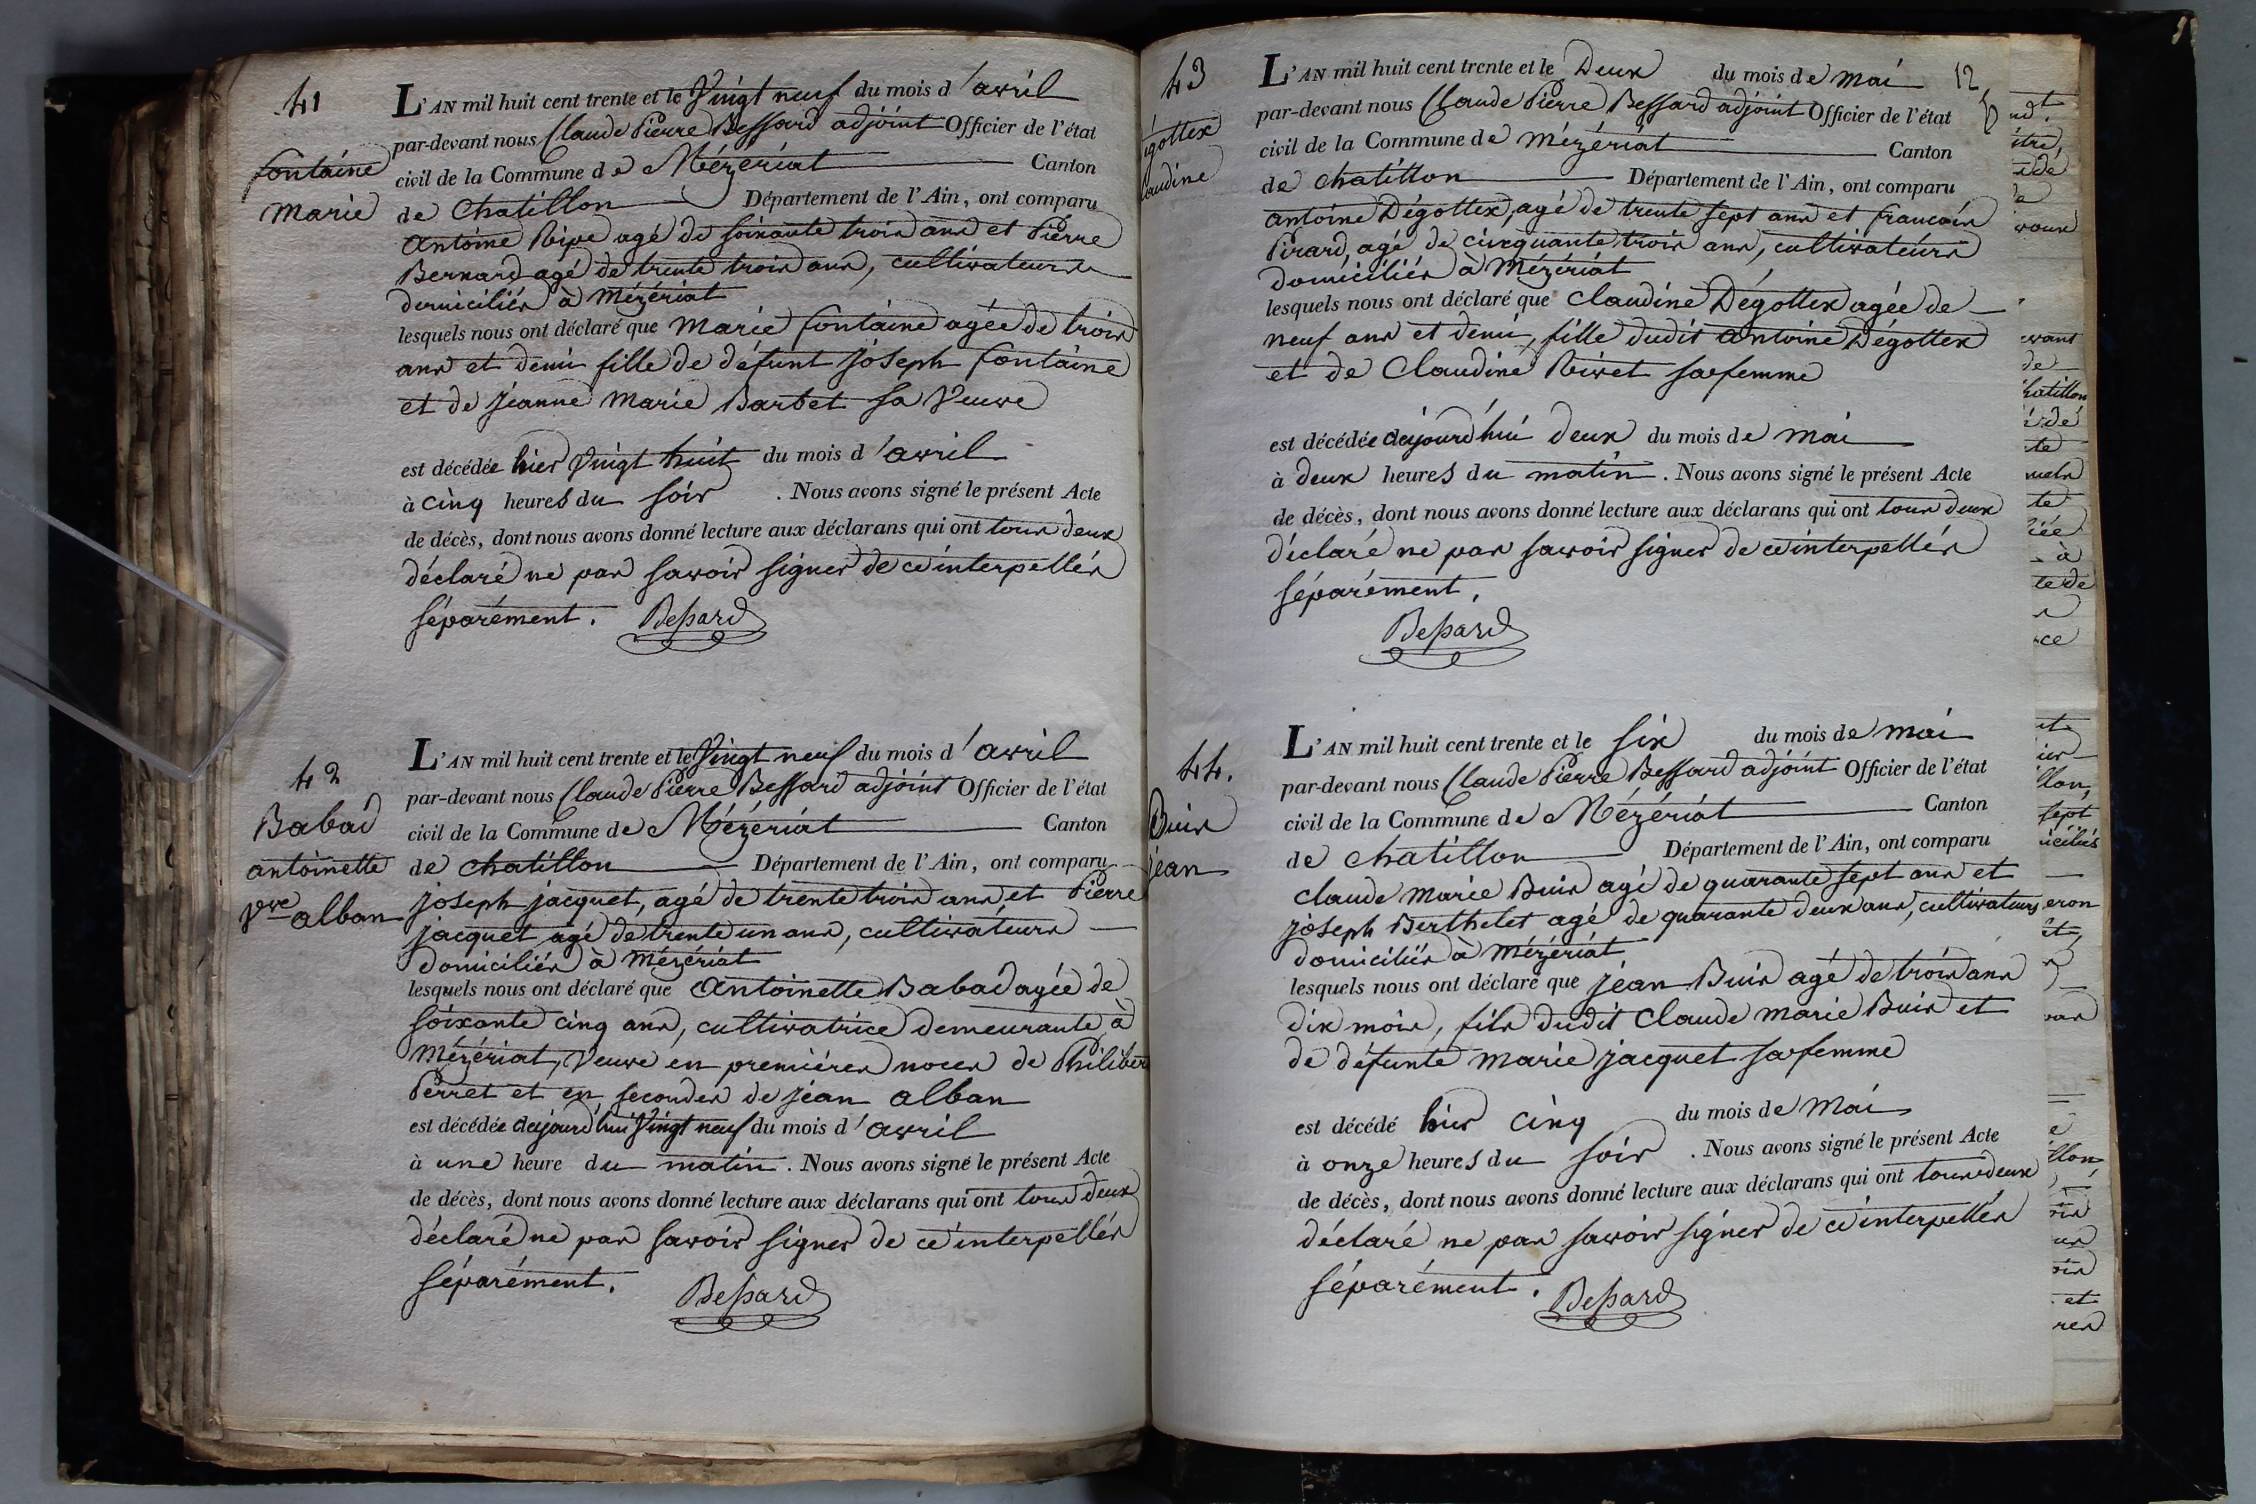 41
fontaine
marie
L'AN mil huit cent trente et le Vingt neuf du mois d'avril
par-devant nous Claude Pierre Bessard adjoint Officier de l'état
civil de la Commune de Mézériat Canton
de Chatillon Département de l'Ain, ont comparu
antoine Ripe agé de soixante trois ans et Pierre
Bernard agé de trente trois ans, cultivateurs
domiciliés à Mézériat
lesquels nous ont déclaré que Marie fontaine agée de trois
ans et demi fille de défunt joseph fontaine
et de jeanne Marie Barbet sa Veuve
est décédée hier Vingt huit du mois d'avril
à cinq heures du soir. Nous avons signé le présent Acte
de décès, dont nous avons donné lecture aux déclarans qui ont tous deux
déclaré ne pas savoir signer de ce interpellés
séparément. Bessard
42
Babad
antoinette
vve alban
L'AN mil huit cent trente et le Vingt neuf du mois d'avril
par-devant nous Claude Pierre Bessard adjoint Officier de l'état
civil de la Commune de Mézériat Canton
de chatillon Département de l'Ain, ont comparu
joseph jacquet, agé de trente trois ans, et Pierre
jacquet agé de trente un ans, cultivateurs
domiciliés à Mézériat
lesquels nous ont déclaré que Antoinette Babad agée de
soixante cinq ans, cultivatrice demeurante à
Mézériat, Veuve en premières noces de Philibert
Perret et en secondes de jean alban
est décédée aujourd'hui Vingt neuf du mois d'avril
à une heure du matin. Nous avons signé le présent Acte
de décès, dont nous avons donné lecture aux déclarans qui ont tous deux
déclaré ne pas savoir signer de ce interpellés
séparément. Bessard
12
43
égottex
laudine
L'AN mil huit cent trente et le Deux du mois de mai
par-devant nous Claude Pierre Bessard adjoint Officier de l'état
civil de la Commune de Mézériat Canton
de chatillon Département de l'Ain, ont comparu
antoine Dégottex, agé de trente sept ans et francois
Pirard, agé de cinquante trois ans, cultivateurs
domiciliés à Mézériat
lesquels nous ont déclaré que Claudine Dégottex agée de
neuf ans et demi, fille dudit antoine Dégottex
et de Claudine Rivet sa femme
est décédée aujourd'hui deux du mois de mai
à deux heures du matin. Nous avons signé le présent Acte
de décès, dont nous avons donné lecture aux déclarans qui ont tous deux
déclaré ne pas savoir signer de ce interpellés
séparément.
Bessard
44.
Buis
jean
L'AN mil huit cent trente et le six du mois de mai
par-devant nous Claude Pierre Bessard adjoint Officier de l'état
civil de la Commune de Mézériat Canton
de chatillon Département de l'Ain, ont comparu
Claude Marie Buis agé de quarante sept ans et
joseph Berthelet agé de quarante deux ans, cultivateurs
domiciliés à Mézériat
lesquels nous ont déclaré que jean Buis agé de trois ans
dix mois, fils dudit Claude Marie Buis et
de défunte Marie jacquet sa femme
est décédé hier cinq du mois de Mai
à onze heures du soir. Nous avons signé le présent Acte
de décès, dont nous avons donné lecture aux déclarans qui ont tous deux
déclaré ne pas savoir signer de ce interpellés
séparément. Bessard